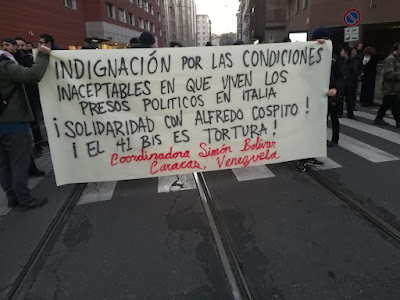 INDIGNACIÓN POR LAS CONDICIONES
INACEPTABLES EN QUE VIVEN LOS
PRESOS POLITICOS EN ITALIA
¡SOLIDARIDAD CON ALFREDO COSPITO!
¡EL 41 BIS ES TORTURA!
Coordinadora Simón Bolívar
Caracas, Venezuela